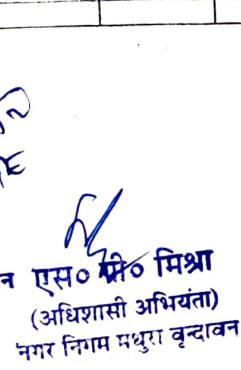 न एस० पी० मिश्रा
(अधिशासी अभियंता)
नगर निगम मथुरा वृन्दावन